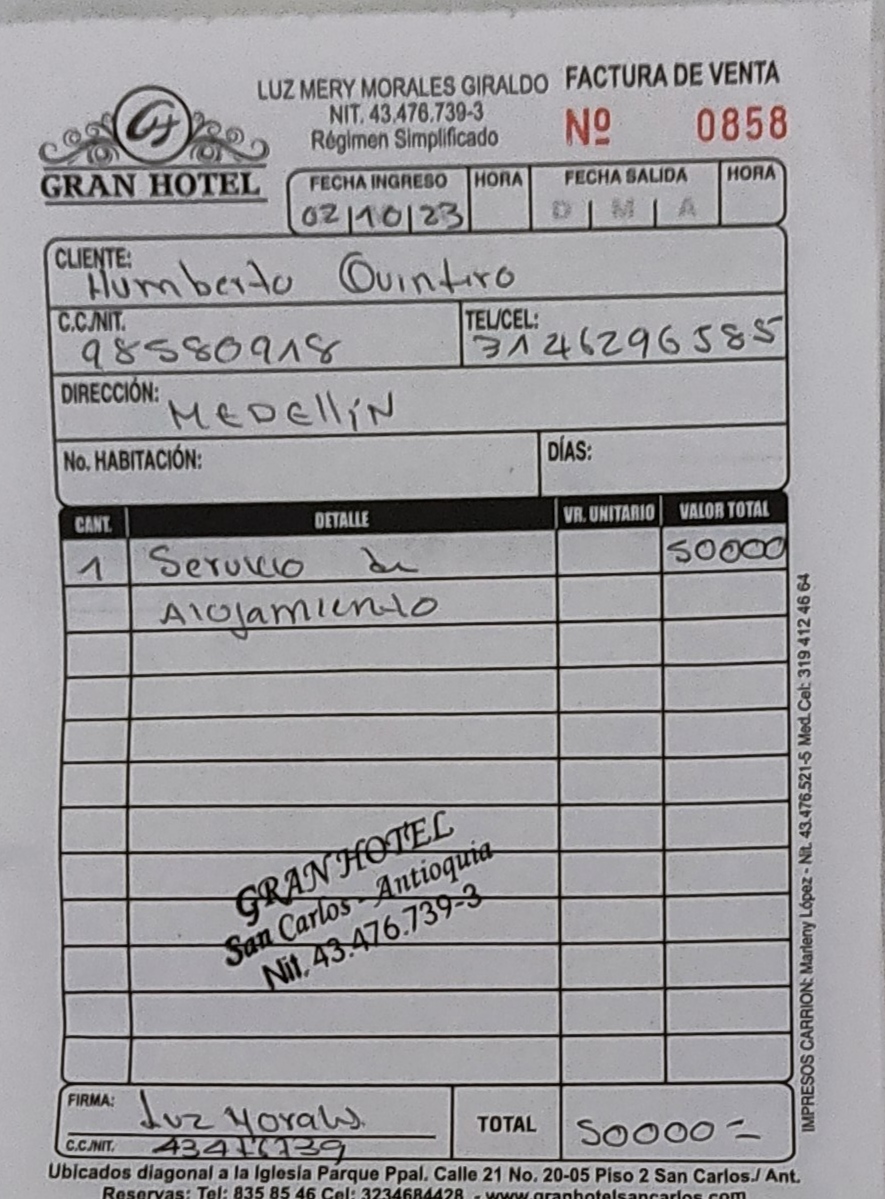 LUZ MERY MORALES GIRALDO
NIT. 43.476.739-3
Régimen Simplificado
FACTURA DE VENTA
Nº 0858
GRAN HOTEL
FECHA INGRESO HORA FECHA SALIDA HORA
02/10/23 D M A
CLIENTE: Humberto Quintero
C.C./NIT. 98580918
TEL/CEL: 3146296585
DIRECCIÓN: MEDEllíN
No. HABITACIÓN: DÍAS:
CANT. DETALLE VR. UNITARIO VALOR TOTAL
1 Servicio de 50000
Alojamiento
GRAN HOTEL
San Carlos - Antioquia
Nit. 43.476.739-3
FIRMA: Luz Morales
C.C./NIT. 43476739
TOTAL 50000=
Ubicados diagonal a la Iglesia Parque Ppal. Calle 21 No. 20-05 Piso 2 San Carlos./ Ant.
Reservas: Tel: 835 85 46 Cel: 3234684428 - www.granhotelsancarlos.com
IMPRESOS CARRION: Marleny López - Nit. 43.476.521-5 Med. Cel: 319 412 46 64